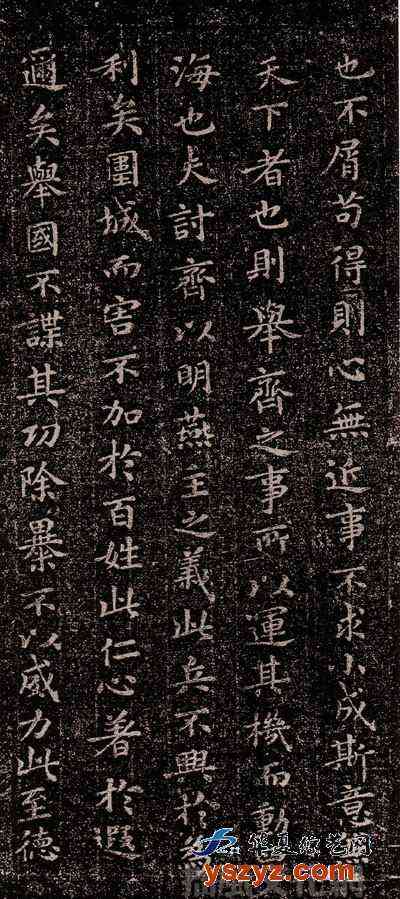 也不屑苟得則心無近事不求小成斯意兼
天下者也則舉齊之事所以運其機而動四
海也夫討齊以明燕主之義此兵不興於為
利矣圍城而害不加於百姓此仁心著於遐
邇矣舉國不謀其功除暴不以威力此至德
yszyz.com